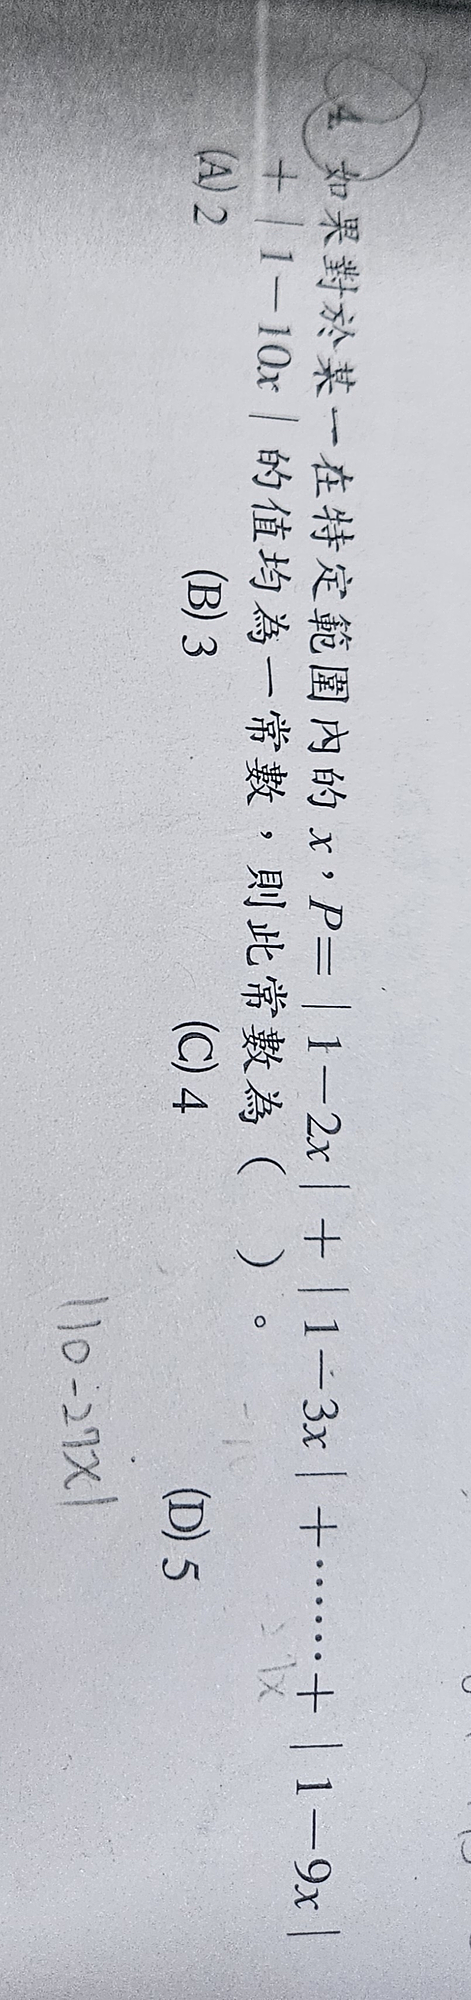 4. 如果對於某一在特定範圍內的 x，P=|1－2x|＋|1－3x|＋……＋|1－9x|
＋|1－10x|的值均為一常數，則此常數為（　）。
(A) 2　(B) 3　(C) 4　(D) 5
|10-27x|